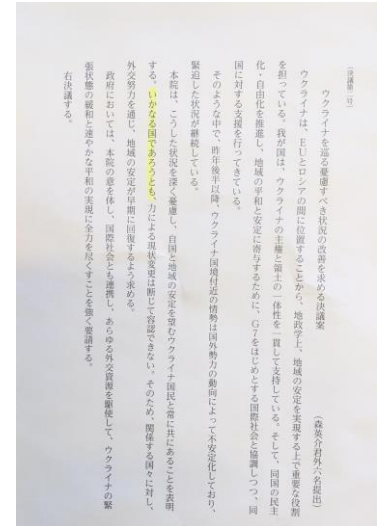 〔決議第二号〕
ウクライナを巡る憂慮すべき状況の改善を求める決議案
（森英介君外六名提出）
ウクライナは、EUとロシアの間に位置することから、地政学上、地域の安定を実現する上で重要な役割
を担っている。我が国は、ウクライナの主権と領土の一体性を一貫して支持している。そして、同国の民主
化・自由化を推進し、地域の平和と安定に寄与するために、G7をはじめとする国際社会と協調しつつ、同
国に対する支援を行ってきている。
そのような中で、昨年後半以降、ウクライナ国境付近の情勢は国外勢力の動向によって不安定化しており、
緊迫した状況が継続している。
本院は、こうした状況を深く憂慮し、自国と地域の安定を望むウクライナ国民と常に共にあることを表明
する。いかなる国であろうとも、力による現状変更は断じて容認できない。そのため、関係する国々に対し、
外交努力を通じ、地域の安定が早期に回復するよう求める。
政府においては、本院の意を体し、国際社会とも連携し、あらゆる外交資源を駆使して、ウクライナの緊
張状態の緩和と速やかな平和の実現に全力を尽くすことを強く要請する。
右決議する。